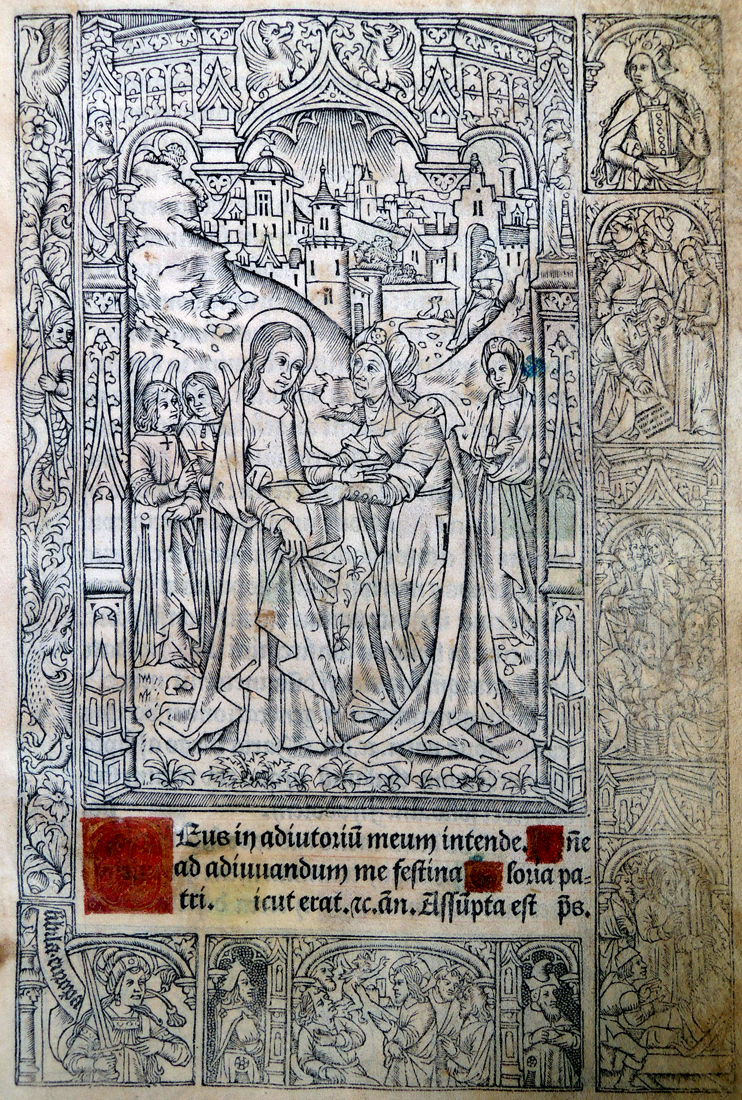 Eus in adiutoriū meum intende. n̄e
ad adiuuandum me festina loria pa=
tri. icut erat. ⁊c. an̄. Assūpta est p̄s.
sibila europea